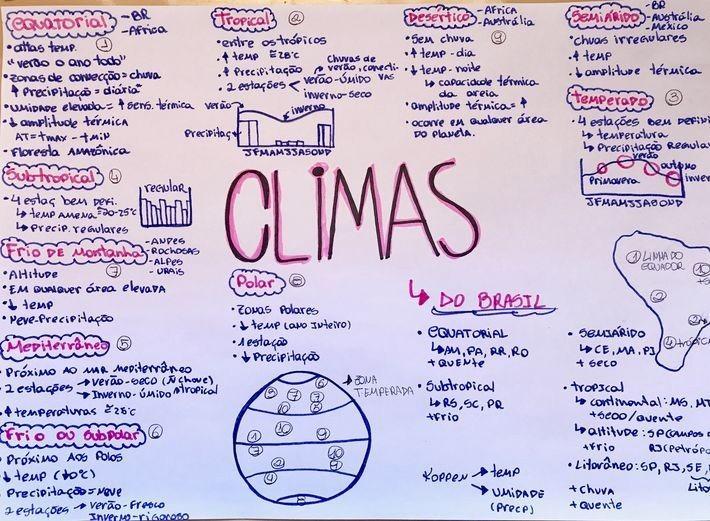 Equatorial
- BR
- África
①
• altas temp.
"verão o ano todo"
• zonas de convecção = chuva
↑ Precipitação = diária
• umidade elevada = ↑ sens. térmica
↓ amplitude térmica
AT = Tmax - Tmin
• Floresta Amazônica
Tropical
②
• entre os trópicos
• ↑ temp ≅ 28°C
• ↑ Precipitação
chuvas de verão, conectivas
• 2 estações
verão - úmido
inverno - seco
verão
inverno
Precipitaç
JFMAMJJASOND
Desértico
- África
- Austrália
⑨
• Sem chuva
• ↑ temp - dia
• ↓ temp - noite
↳ capacidade térmica
da areia
• amplitude térmica = ↑
• ocorre em qualquer área
do planeta.
Semiárido
- BR
- Austrália
- México
• chuvas irregulares
• ↑ temp
• ↓ amplitude térmica
Temperado
③
• 4 estações bem defini
↳ temperatura
↳ Precipitação regular
verão
outono
Primavera
inver
JFMAMJJASOND
Subtropical
④
• 4 estaç bem defi.
↳ temp amena ≅ 20-25°C
↳ Precip. regulares
regular
CLIMAS
Frio de Montanha
⑦
- Andes
- Rochosas
- Alpes
- Urais
• Altitude
• Em qualquer área elevada
• ↓ temp
• Neve-Precipitação
Mediterrâneo
⑤
• Próximo ao mar mediterrâneo
• 2 estações → Verão-seco (ñ chove)
↳ Inverno-úmido
≠ tropical
• ↑ temperaturas ≅ 28°C
Frio ou Subpolar
⑥
• Próximo aos Polos
↓ temp (↓0°C)
Precipitação = Neve
2 estações → Verão-Fresco
Inverno-rigoroso
Polar
⑧
• Zonas Polares
• ↓ temp (ano inteiro)
• 1 estação
• ↓ Precipitação
→ Zona
Temperada
↳ DO BRASIL
• Equatorial
↳ AM, PA, RR, RO
+ quente
• Subtropical
↳ RS, SC, PR
+ frio
Koppen
→ temp
→ umidade
(Precp)
① Linha do
Equador
②
④
• Semiárido
↳ CE, MA, PI
+ seco
• tropical
↳ continental: MS, MT
+ seco / quente
↳ altitude: SP (campos d
+ frio
RJ (Petróp
• Litorâneo: SP, RJ, SE,
+ chuva
+ quente